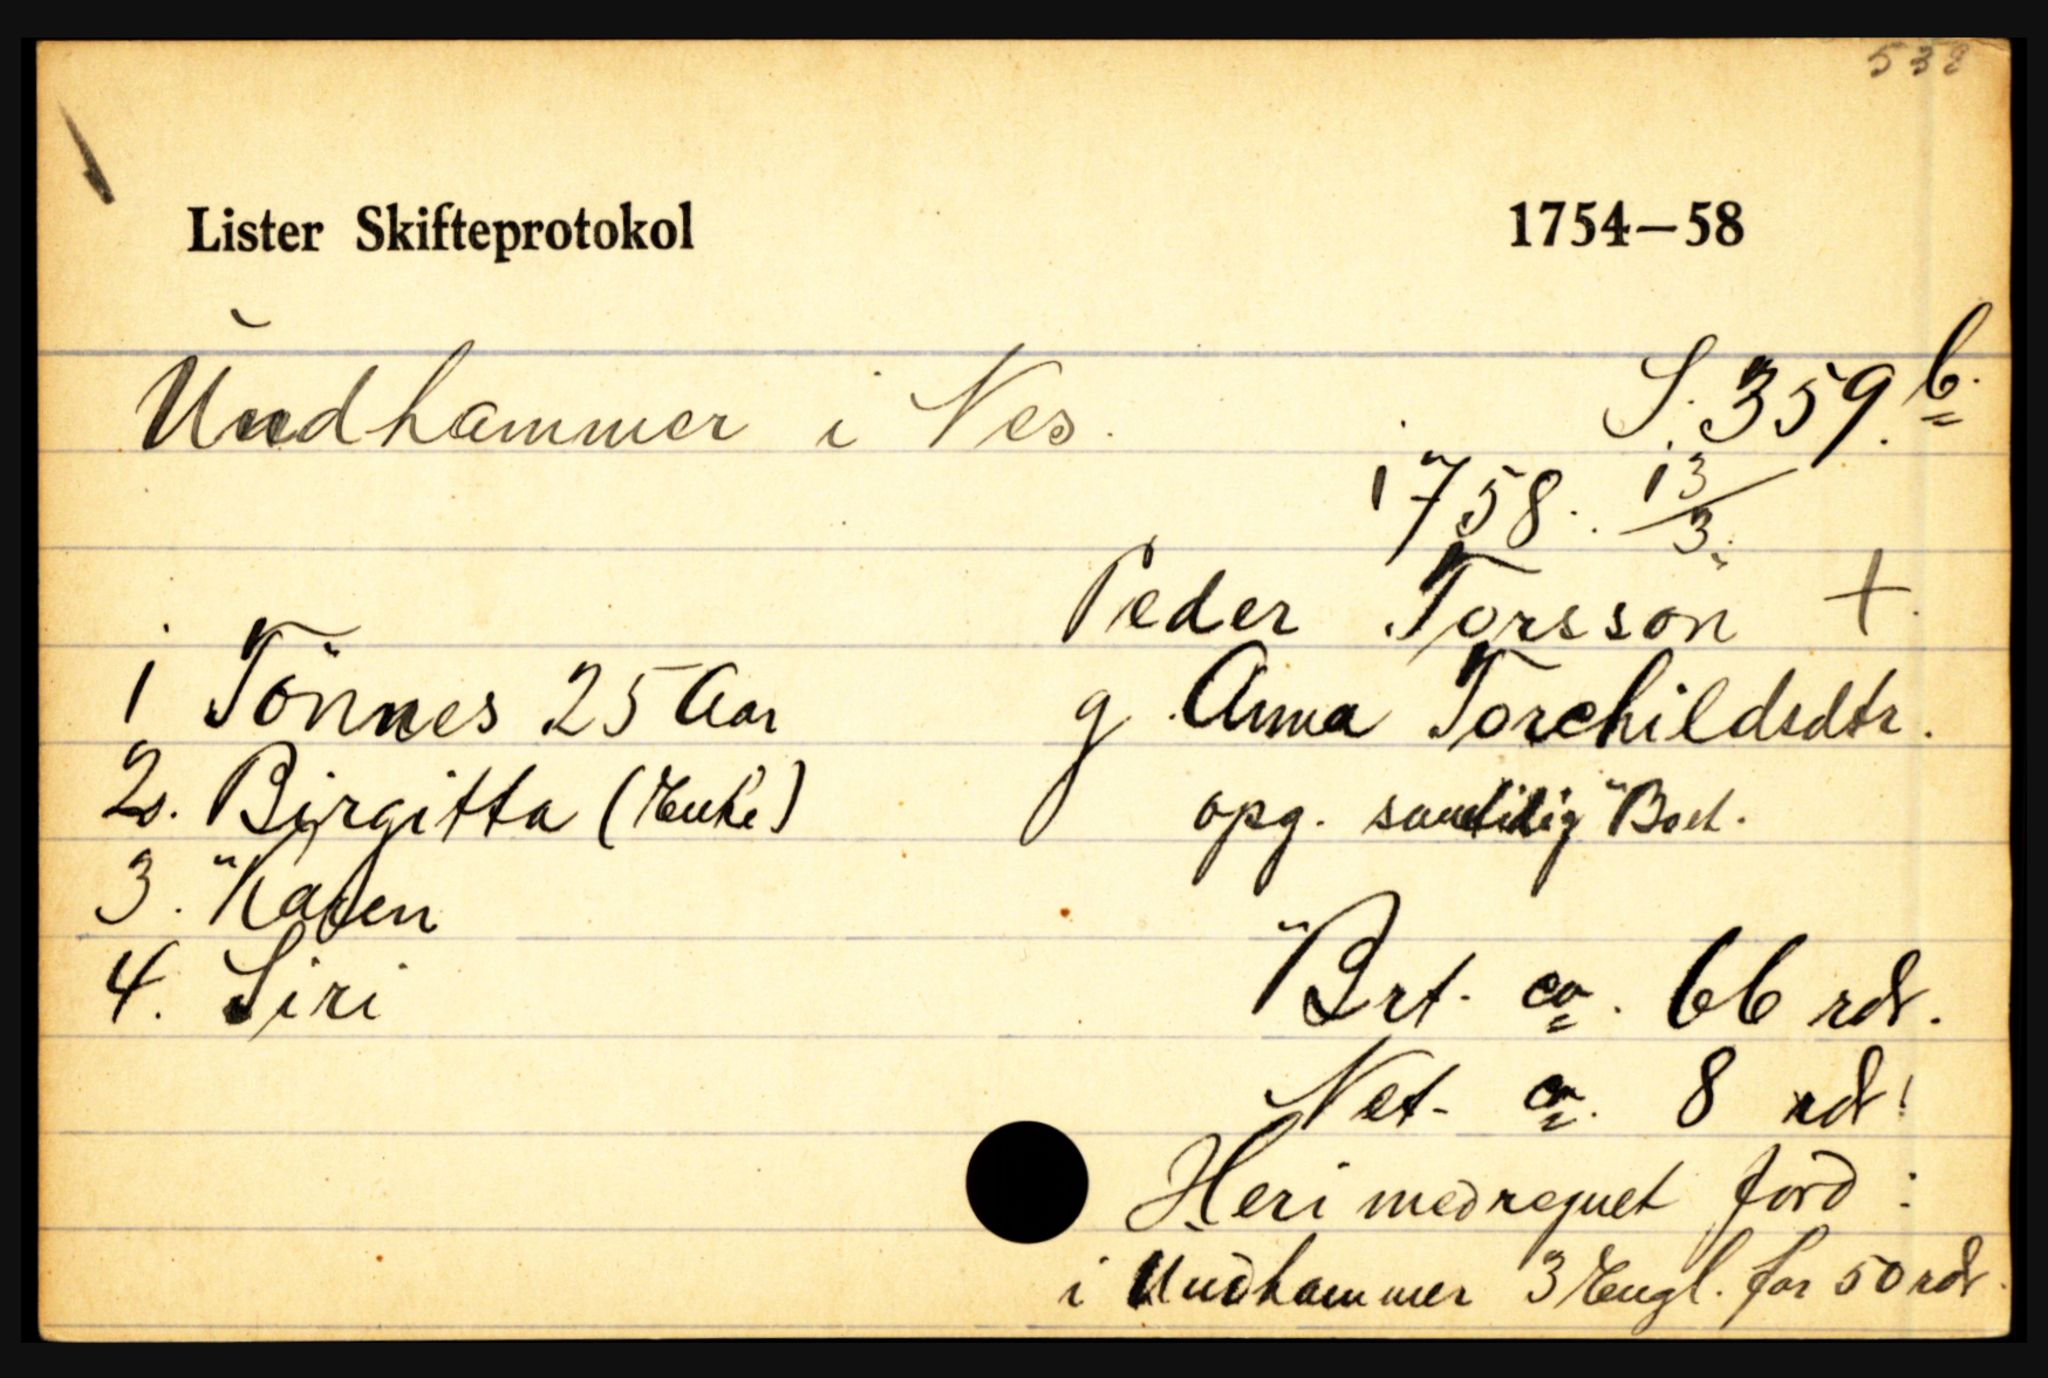 538
Lister Skifteprotokol 1754–58
Undhammer i Nes. S. 359.b.
1758. 13/3.
Peder Torsson +.
1 Tönnes 25 Aar g. Anna Torchildsdtr.
2. Birgitta (Enke) opg. samtidig Boet.
3. Karen
4. Siri
Brt. ca. 66 rdr.
Net. ca. 8 rdr!
Heri medregnet jord:
i Undhammer 3 Engl. for 50 rdr.